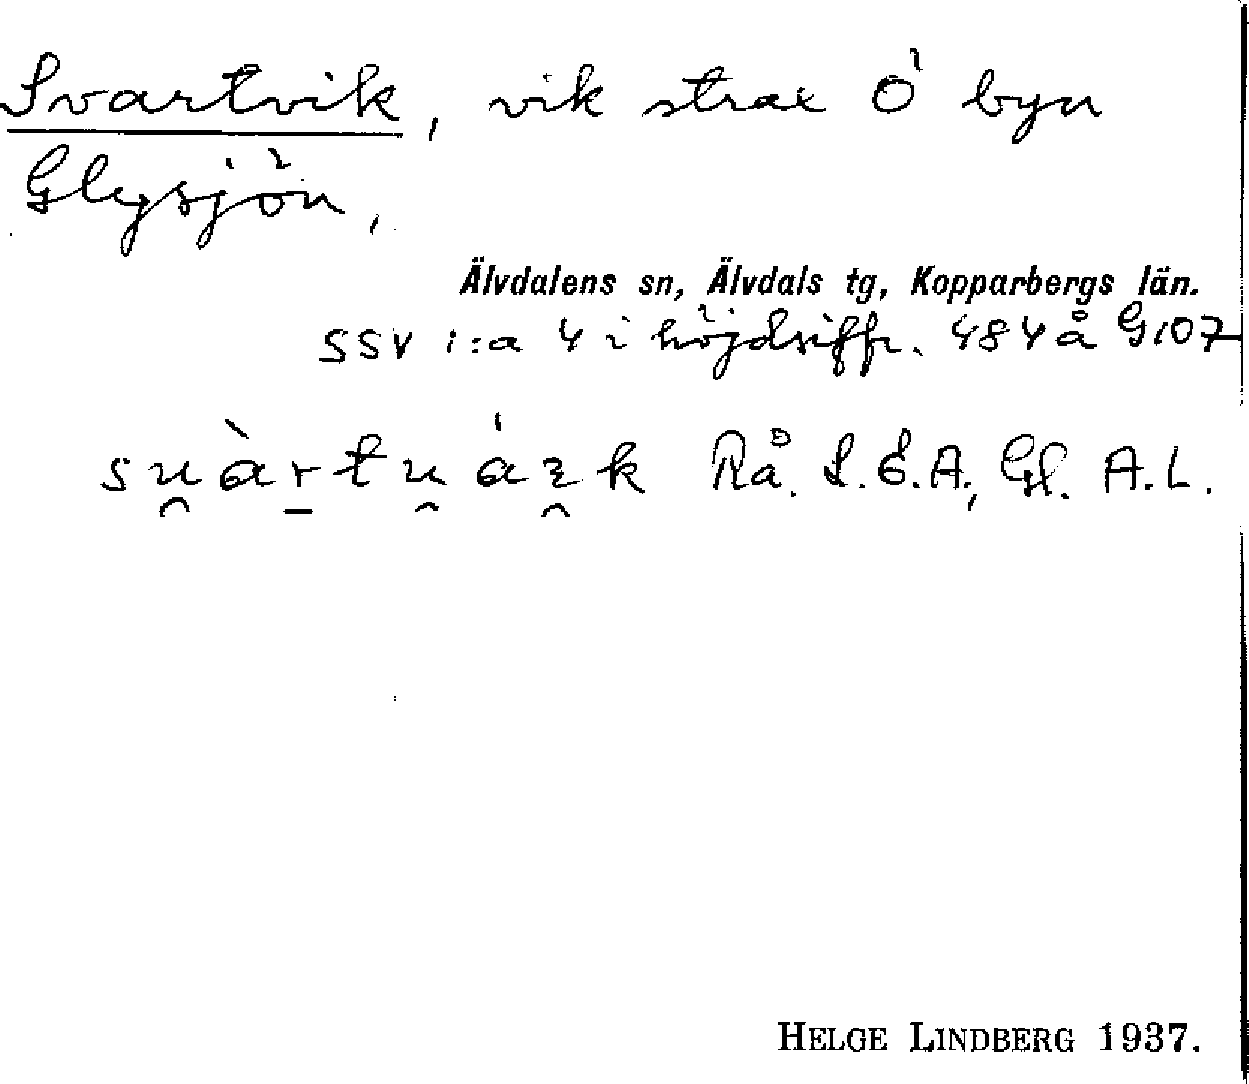 Svartvik, vik strax Ö byn
Glysjön,
Älvdalens sn, Älvdals tg, Kopparbergs län.
SSV 1:a 4 i höjdsiffr. 484 å G107
su̯àr̠tu̯áı̯k Rå. S.E.A., Gl. A.L.
HELGE LINDBERG 1937.